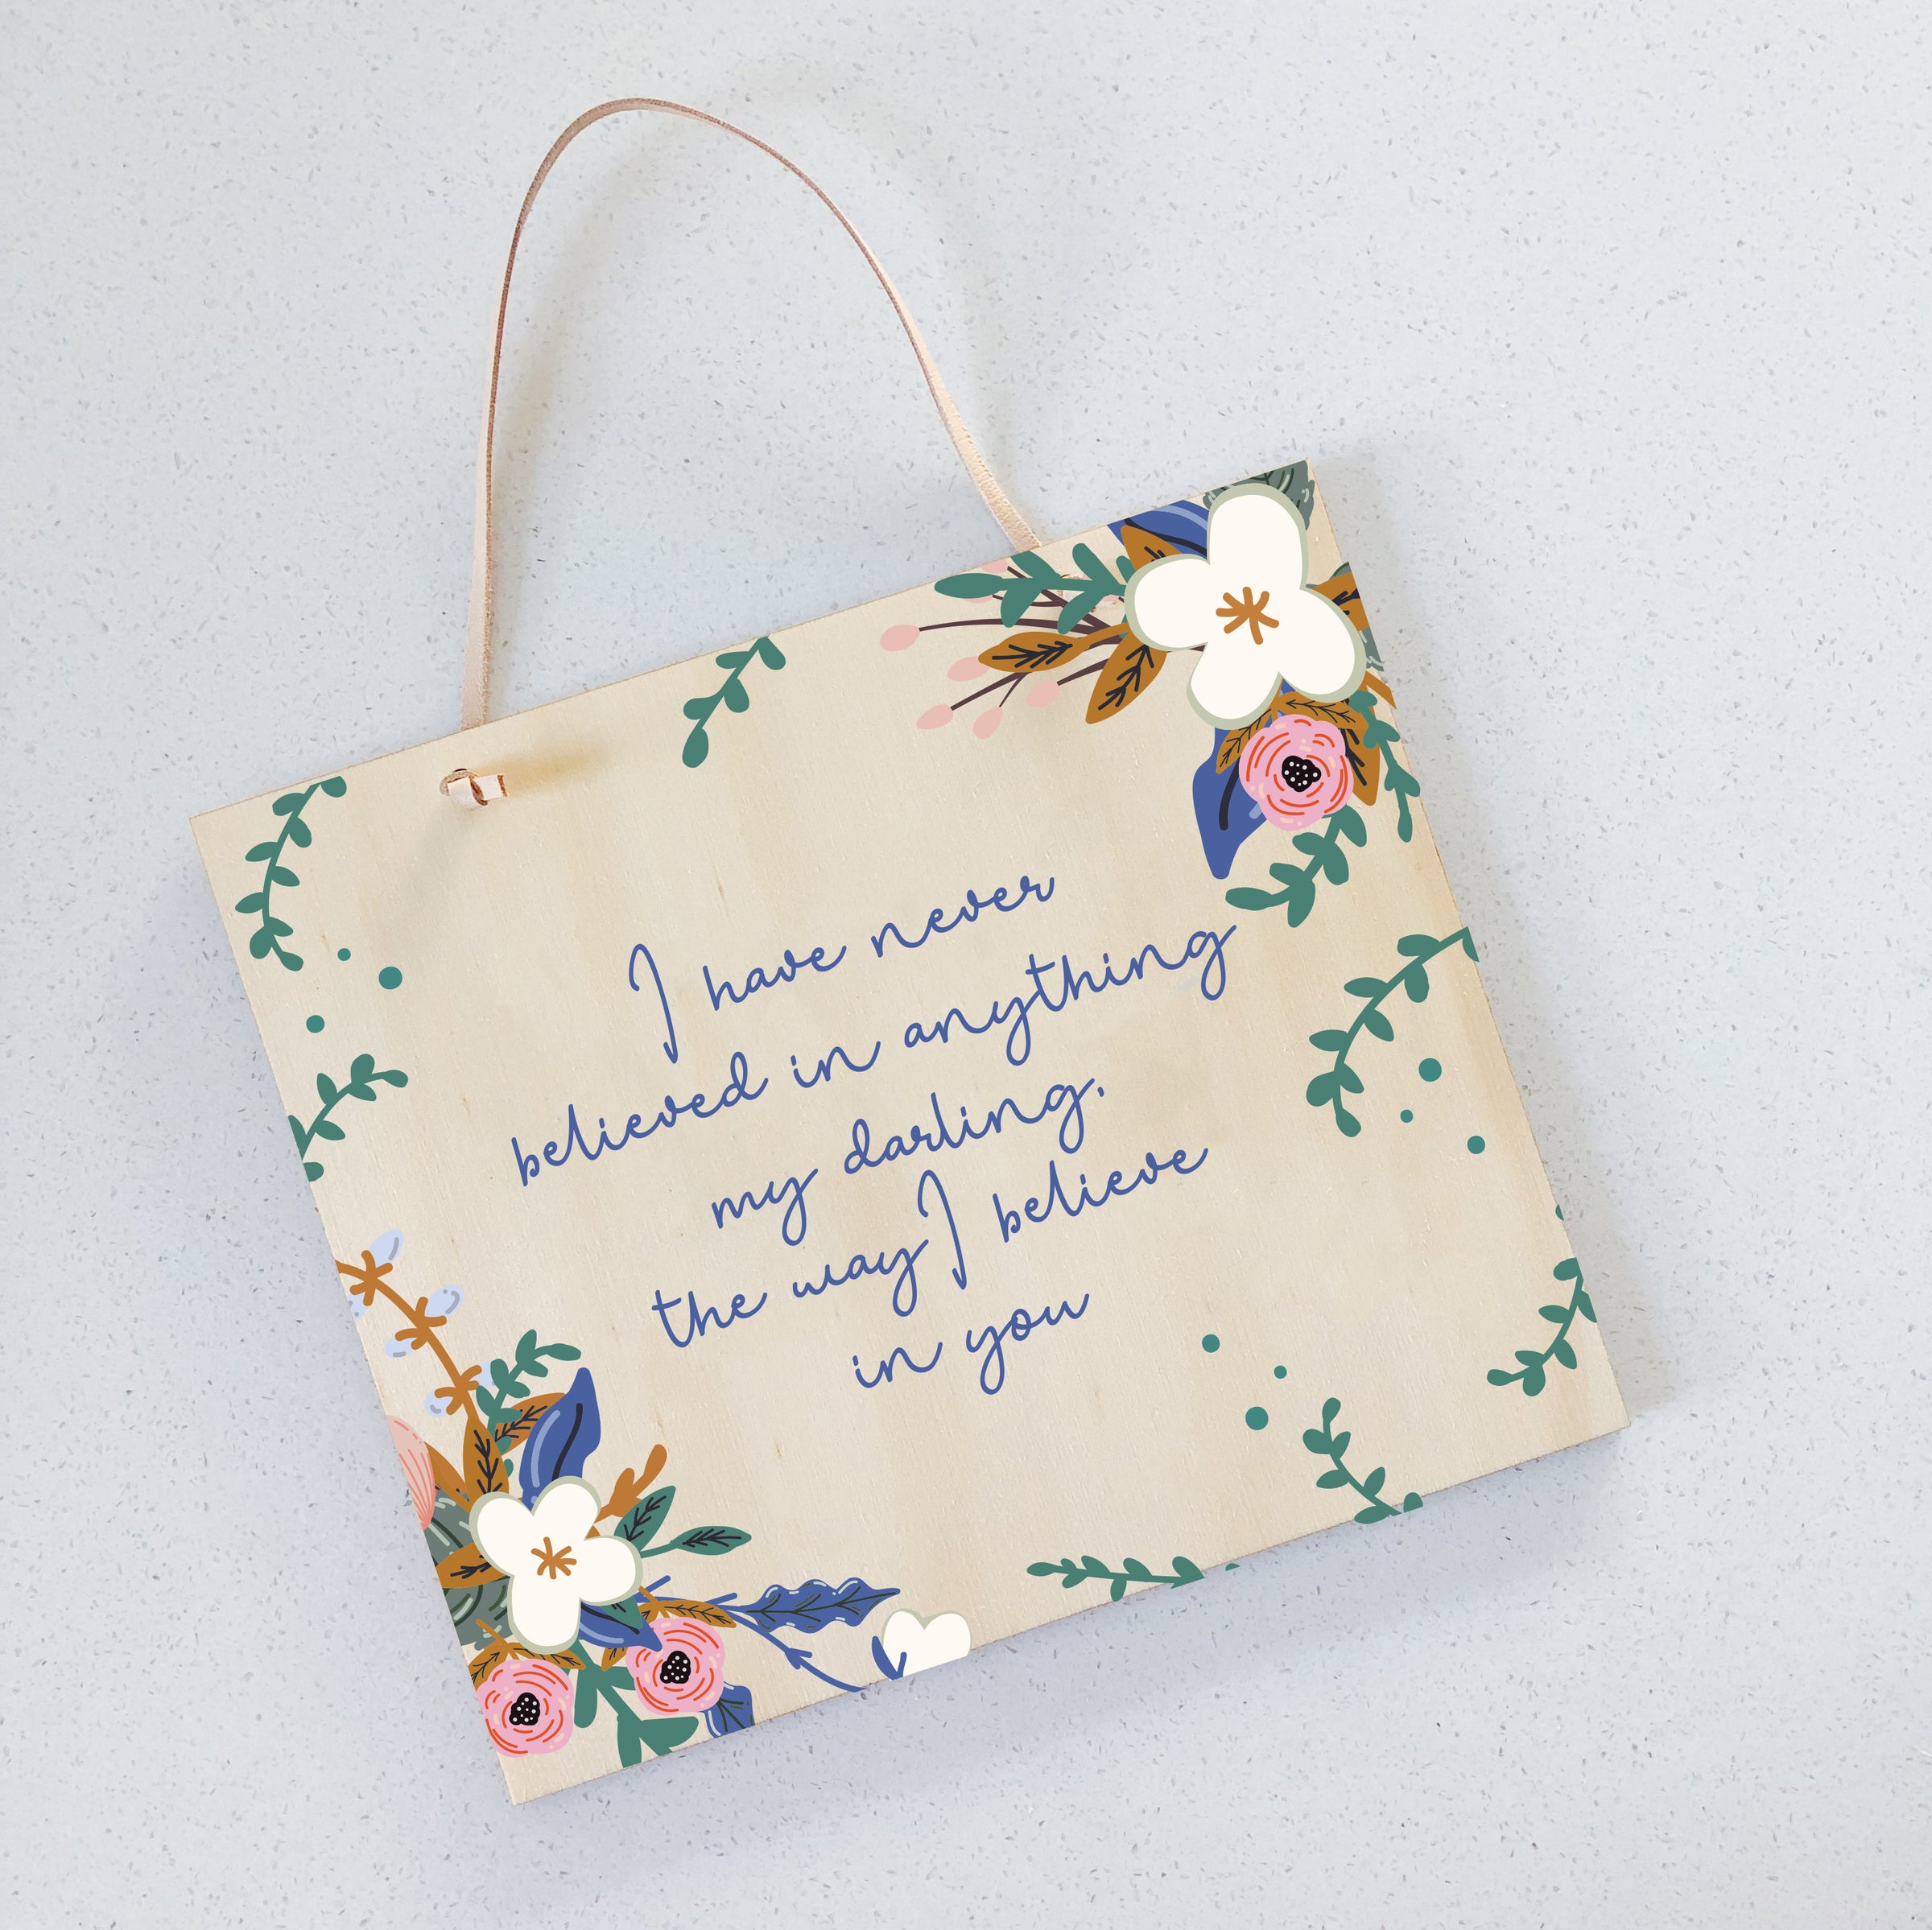 I have never
believed in anything
my darling,
the way I believe
in you